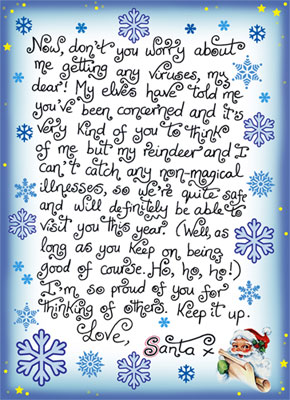 Now, don't you worry about
me getting any viruses, my
dear! My elves have told me
you've been concerned and it's
very kind of you to think
of me but my reindeer and I
can't catch any non-magical
illnesses, so we're quite safe
and will definitely be able to
visit you this year. (Well, as
long as you keep on being
good of course. Ho, ho, ho!)
I'm so proud of you for
thinking of others. Keep it up.
Love,
Santa x